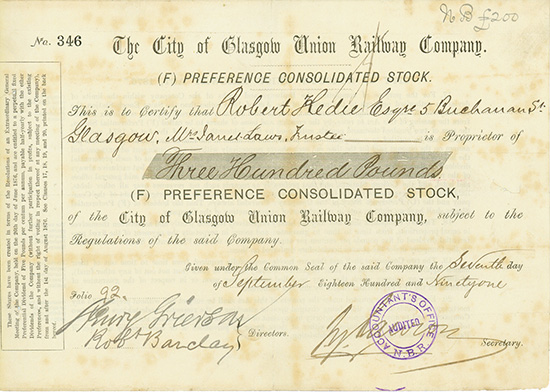 N.B £200
No. 346
The City of Glasgow Union Railway Company.
(F) PREFERENCE CONSOLIDATED STOCK.
This is to Certify that Robert Kedie Esqre 5 Buchanan St.
Glasgow, Mrs Janet Laws, Trustee is Proprietor of
Three Hundred Pounds
(F) PREFERENCE CONSOLIDATED STOCK,
of the City of Glasgow Union Railway Company, subject to the
Regulations of the said Company.
Given under the Common Seal of the said Company the Seventh day
of September Eighteen Hundred and Ninetyone
Folio 92.
Henry Grierson
Robt Barclay
Directors.
Secretary.
ACCOUNTANT'S OFFICE
AUDITED
N.B.R.
These Shares have been created in terms of the Resolutions of an Extraordinary General
Meeting of the Company, held on the 20th day of June 1878, and are entitled to a perpetual fixed
Preferential Dividend of Five Pounds per centum per annum, payable half-yearly with the other
Dividends of the Company (without further participation in profits, subject to the existing
Preferences, and without the right of voting in respect thereof at any meeting of the Company,
from and after the 1st day of August 1878. See Clauses 17, 18, 19, and 20, printed on the back
hereof.